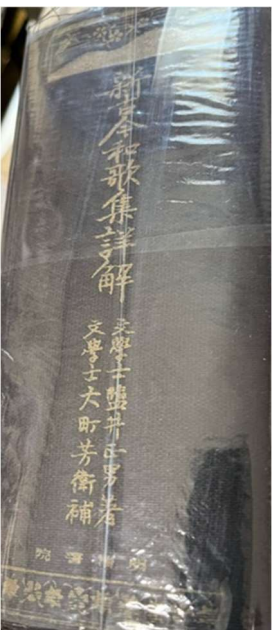 新古今和歌集詳解
文學士鹽井正男著
文學士大町芳衛補
明治書院